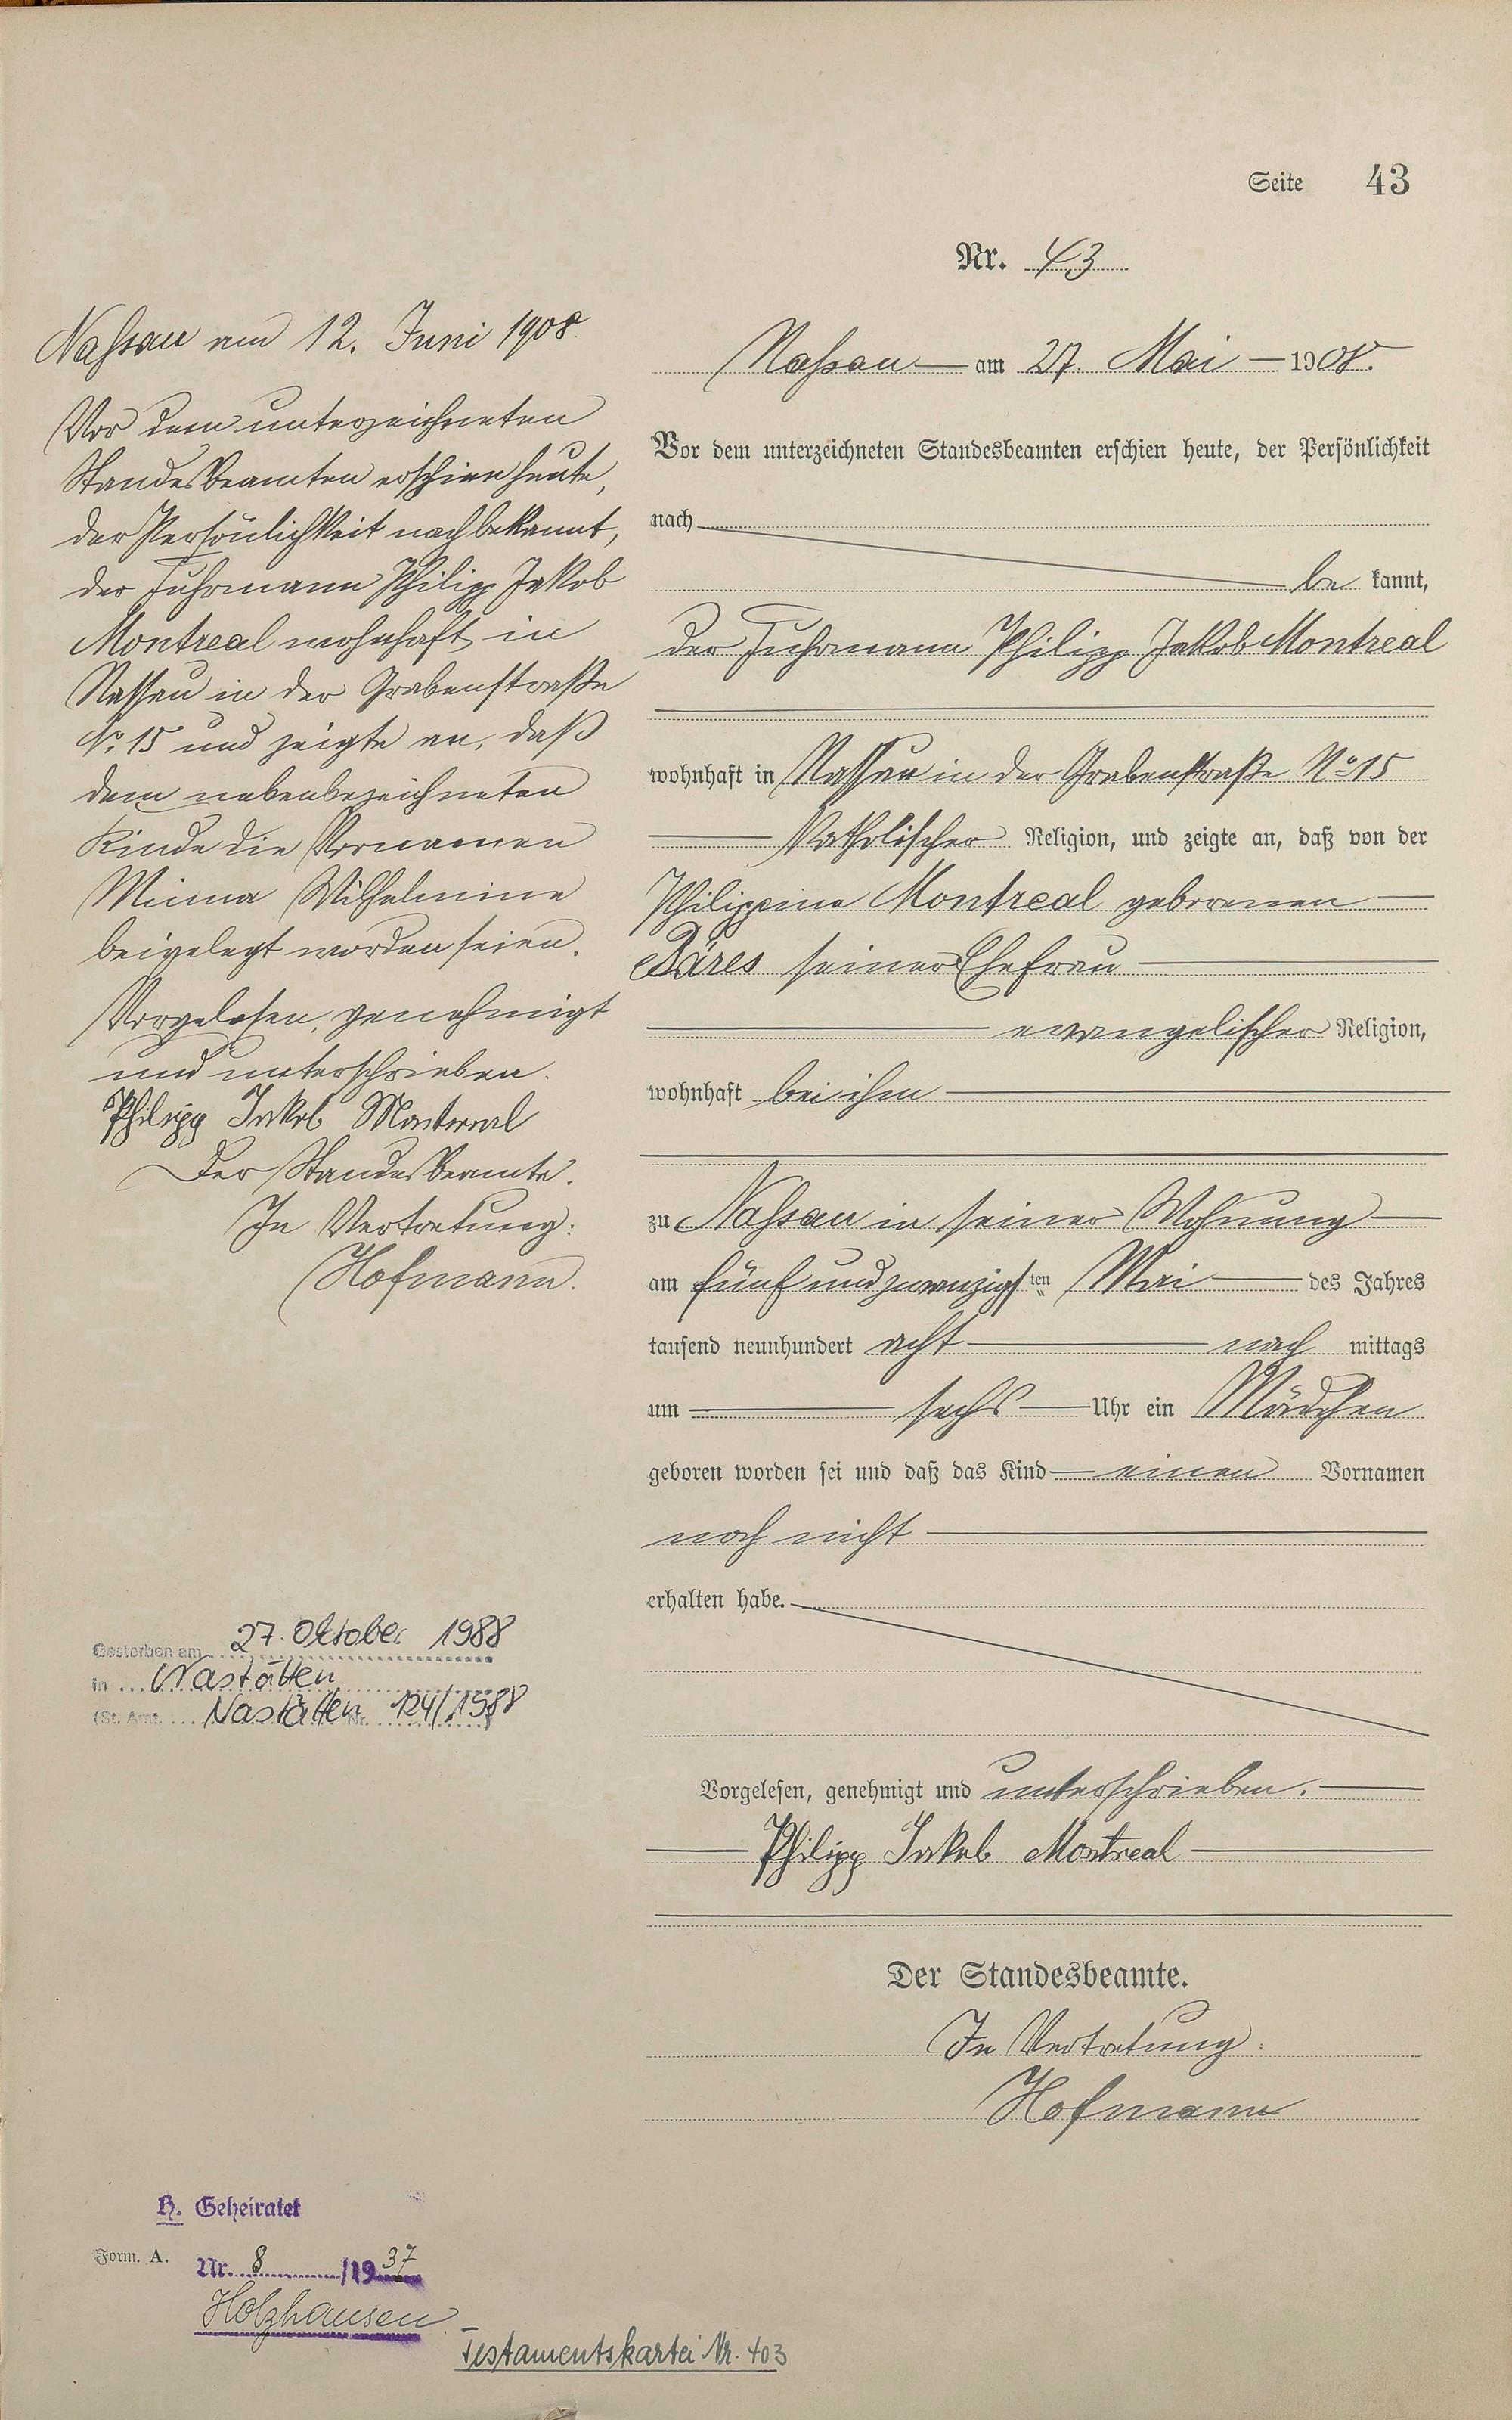 Seite 43
Nr. 43
Nassau am 12. Juni 1908.
Vor dem unterzeichneten
Standesbeamten erschien heute,
der Persönlichkeit nach bekannt,
der Fuhrmann Philipp Jakob
Montreal wohnhaft in
Nassau in der Grabenstraße
No. 15 und zeigte an, daß
dem nebenbezeichneten
Kinde die Vornamen
Minna Wilhelmine
beigelegt worden seien.
Vorgelesen, genehmigt
und unterschrieben.
Philipp Jakob Montreal
Der Standesbeamte.
In Vertretung:
Hofmann.
Gestorben am 27. Oktober 1988
in Nastätten
(St. Amt. Nastätten Nr. 124/1988)
H. Geheiratet
Form. A.
Nr. 8 /1937
Holzhausen
Testamentskartei Nr. 403
Nassau am 27. Mai 1908.
Vor dem unterzeichneten Standesbeamten erschien heute, der Persönlichkeit
nach
be kannt,
der Fuhrmann Philipp Jakob Montreal
wohnhaft in Nassau in der Grabenstraße No 15
katholischer Religion, und zeigte an, daß von der
Philippine Montreal geborenen
Bäres seiner Ehefrau
evangelischer Religion,
wohnhaft bei ihm
zu Nassau in seiner Wohnung
am fünf und zwanzigsten Mai des Jahres
tausend neunhundert acht nach mittags
um sechs Uhr ein Mädchen
geboren worden sei und daß das Kind einen Vornamen
noch nicht
erhalten habe.
Vorgelesen, genehmigt und unterschrieben.
Philipp Jakob Montreal
Der Standesbeamte.
In Vertretung:
Hofmann